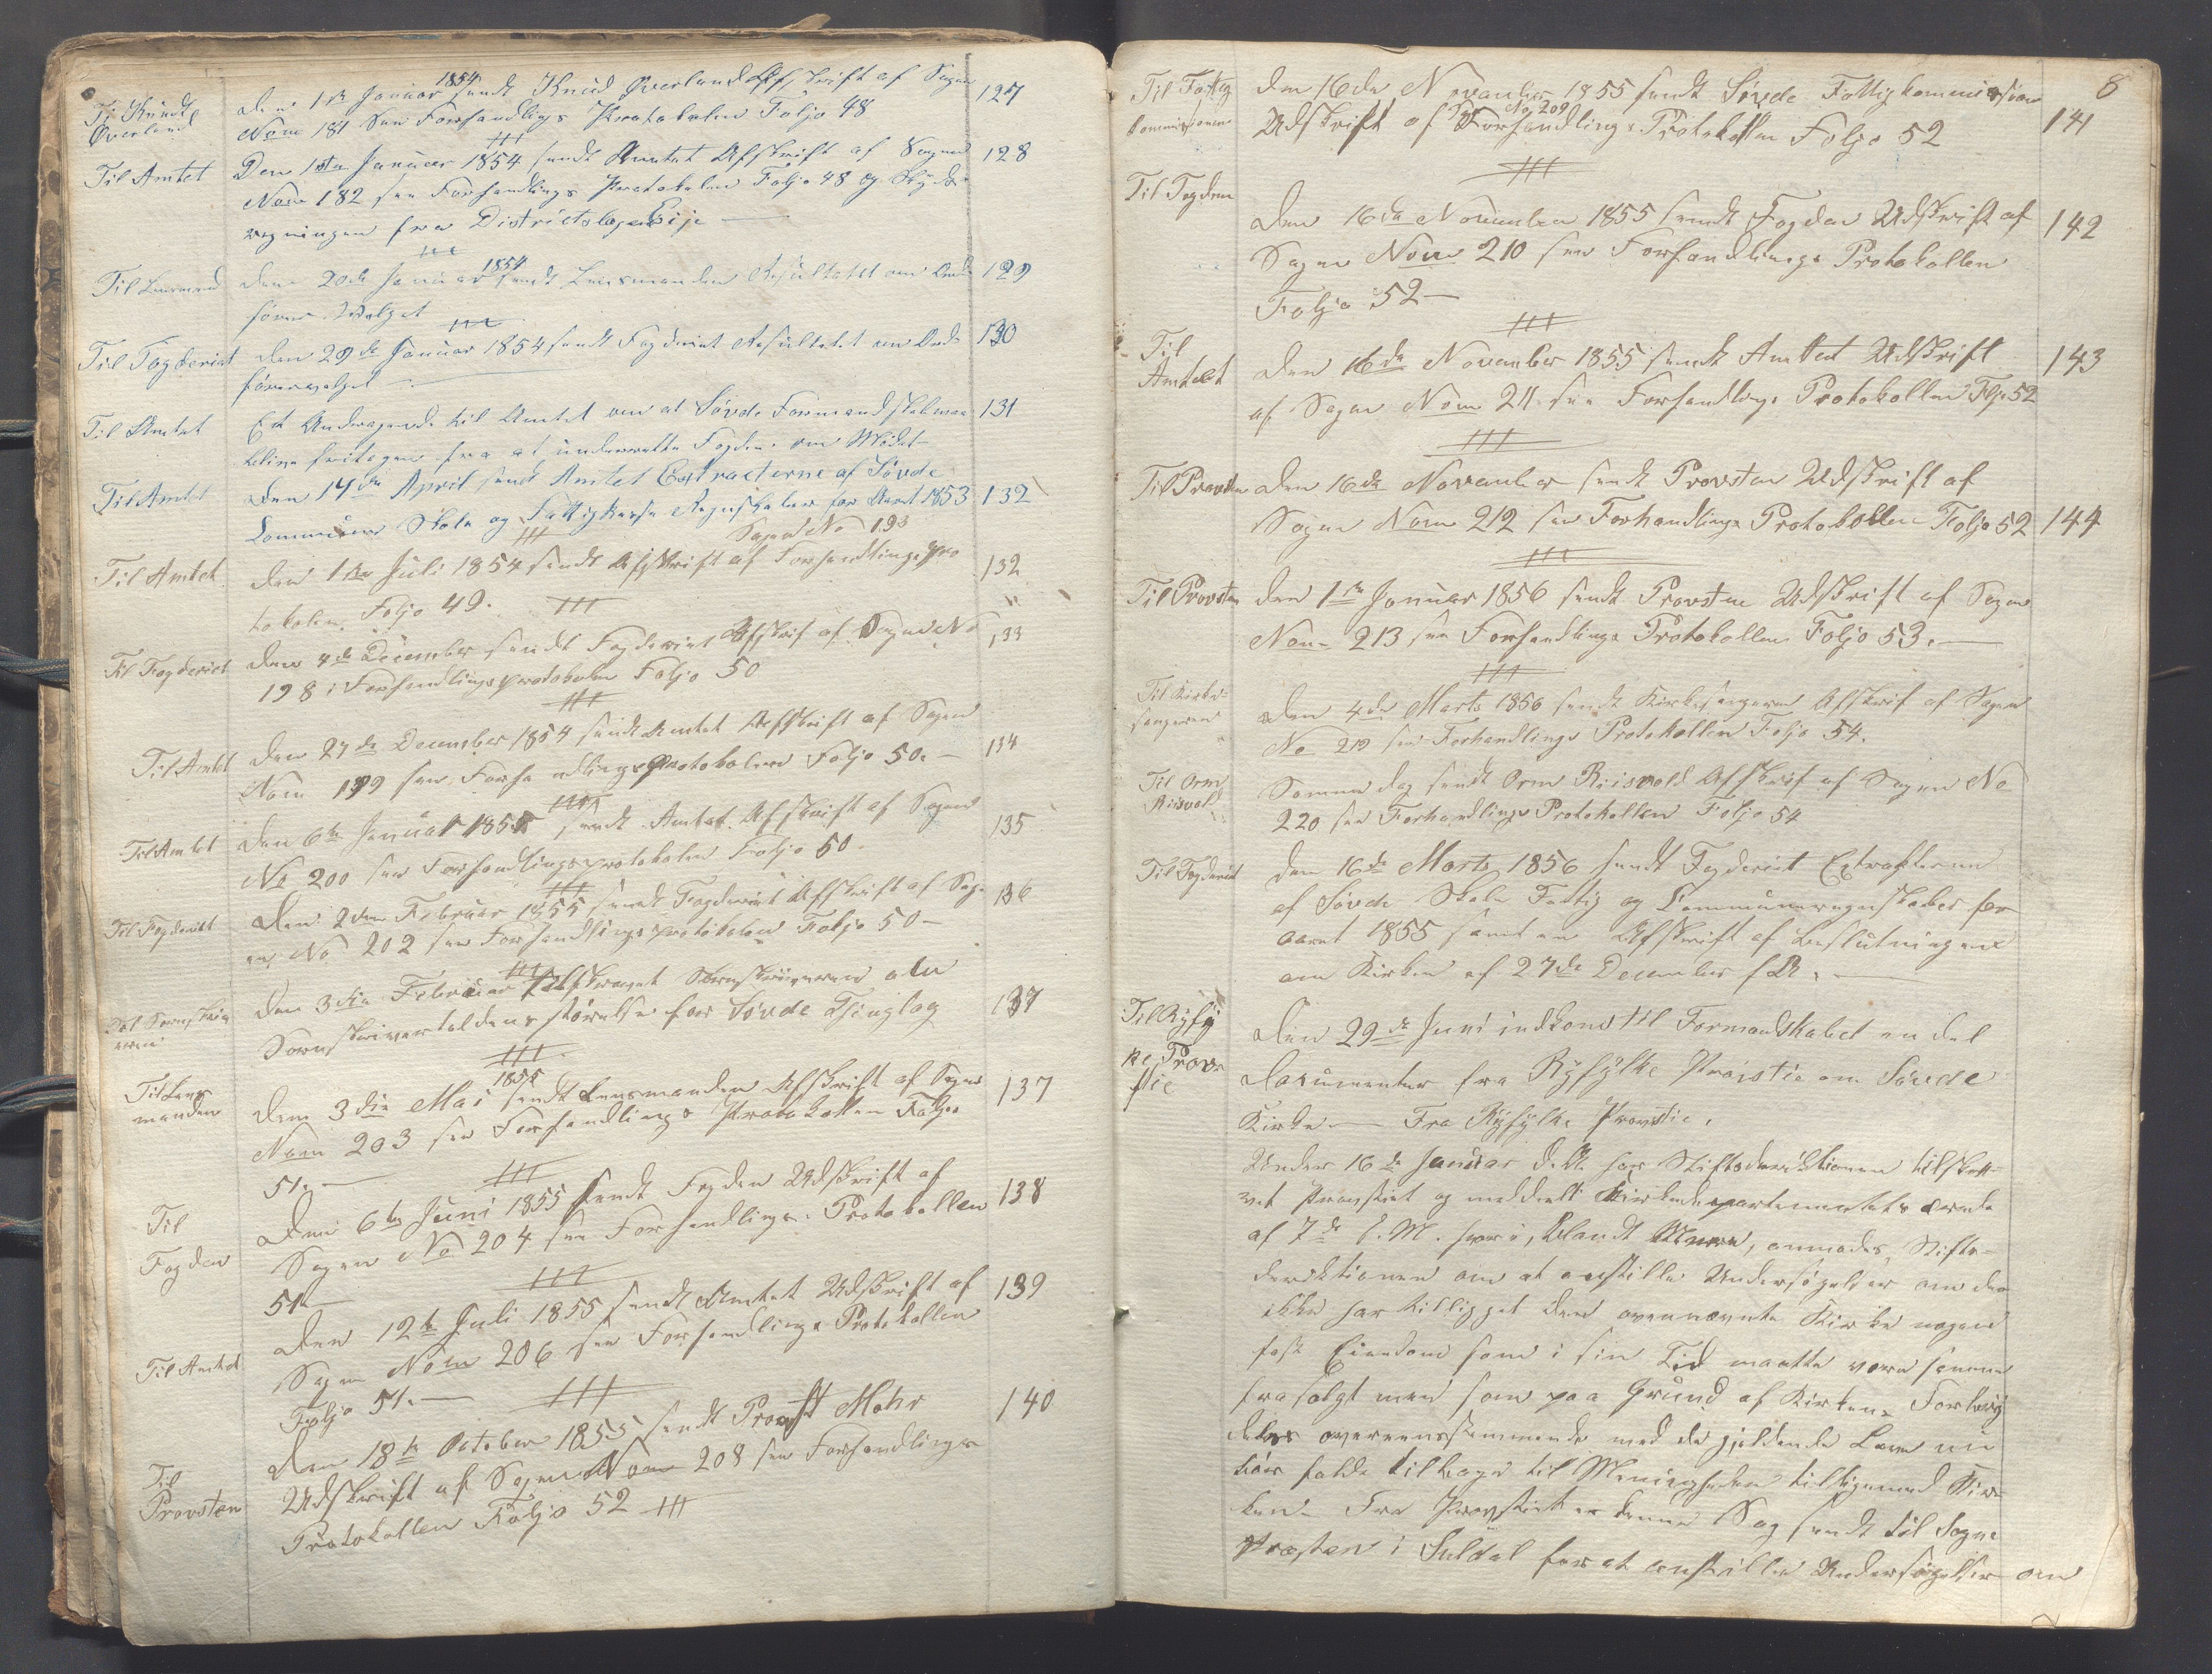 Til Knudt
Øverland
Den 1ste Januar 1854 sendt Knud Øverland Afskrift af Sagen 127
Nom 181 See Forhandlings Protokolen Foljo 48
Til Amtet
Den 1ste Januar 1854 sendt Amtet Afskrift af Sagen 128
Nom 182 see Forhandlings Protokolen Foljo 48 og Skyds-
regningen fra Districtslægen
Til Lensmand
Den 20de Januar 1854 sendt Lensmanden Resultatet om Ord- 129
fører Valget
Til Fogderiet
Den 29de Januar 1854 sendt Fogderiet Resultatet om Ord- 130
førervalget
Til Amtet
Et Andragende til Amtet om at Søvde Formandskab maa 131
blive fritagen fra at underrette Fogden om Mødet
Til Amtet
Den 14de April sendt Amtet Extracterne af Søvde
Commune Skole og Fattigkasse Regnskaber for Aaret 1853 132
Sagen No 193
Til Amtet
Den 1ste Juli 1854 sendt Afskrift af Forhandlingspro 132
tokolen Foljo 49.
Til Fogderiet
Den 4de December sendt Fogderiet Afskrif af Sagen No 133
198 i Forhandlingsprotokolen Foljo 50
Til Amtet
Den 27de December 1854 sendt Amtet Afskrift af Sagen
Nom 199 see Forhandlingsprotokolen Foljo 50. 134
Til Amtet
Den 6te Januar 1855 sendt Amtet Afskrift af Sagen
No 200 see Forhandlingsprotokolen Foljo 50. 135
Til Fogderiet
Den 2den Februar 1855 sendt Fogderiet Afskrift af Sag- 136
en No 202 see Forhandlingsprotokolen Foljo 50
Til Sornskriv
eren
Den 3die Februar Sornskriveren om
Sornskrivertoldens størrelse for Søvde Thinglag 137
Til Lens
manden
Den 3die Mai 1855 sendt Lensmanden Afskrift af Sagen 137
Nom 203 see Forhandlings Protokollen Foljo
51.
Til
Fogden
Den 6te Juni 1855 sendt Fogden Udskrift af
Sagen No 204 see Forhandlings Protokollen 138
51
Til Amtet
Den 12te Juli 1855 sendt Amtet Udskrift af 139
Sagen Nom 206 see Forhandlings Protokollen
Foljo 51.
Til
Provsten
Den 18te October 1855 sendt Provst Mohr 140
Udskrift af Sagen Nom 208 see Forhandlings
Protokollen Foljo 52
8
Til Fattig
kommissionen
Den 16de November 1855 sendt Søvde Fattigkommission
Udskrift af Sag No 209 Forhandlings Protokollen Foljo 52 141
Til Fogden
Den 16de November 1855 sendt Fogden Udskrift af 142
Sagen Nom 210 see Forhandlings Protokollen
Foljo 52
Til
Amtet
Den 16de November 1855 sendt Amtet Udskrift 143
af Sagen Nom 211 see Forhandlings Protokollen Foljo 52
Til Provsten
Den 16de November sendt Provsten Udskrift af
Sagen Nom 212 see Forhandlings Protokollen Foljo 52 144
Til Provsten
Den 1ste Januar 1856 sendt Provsten Udskrift af Sagen
Nom 213 see Forhandlings Protokollen Foljo 53.
Til Kirke-
sangeren
Den 4de Marts 1856 sendt Kirkesangeren Afskrif af Sagen
No 219 see Forhandlings Protokollen Foljo 54.
Til Orm
Riisvold
Samme dag sendt Orm Riisvold Afskrif af Sagen No
220 see Forhandlings Protokollen Foljo 54
Til Fogderiet
Den 16de Marts 1856 sendt Fogderiet Extrakterne
af Søvde Skole Fattig og Communeregnskaber for
aaret 1855 samt en Afskrift af Beslutningen
om Kirken af 27de December f. A.
Til Ryfyl
ke Prov-
stie
Den 29de Juni indkom til Formandskabet en del
Documenter fra Ryfylke Provstie om Søvde
Kirke — Fra Ryfylke Provstie.
Under 16de Januar d. A. har Stiftsdirektionen tilskre-
vet Provstiet og meddeelt Kirkedepartementets ærende
af 7de s. M. hvori, blandt Mere, anmodes Stifts-
direktionen om at anstille Undersøgelser om der
ikke har tilligget den ovennævnte Kirke nogen
fast Eiendom som i sin Tid maatte være samme
frasolgt men som paa Grund af Kirkens
overeensstemmende med de gjeldende Love nu
bør falde tilbage til Menigheden tilligemed Kir-
ken. Fra Provstiet er denne Sag sendt til Sogne
Præsten i Suldal for at anstille Undersøgelser om